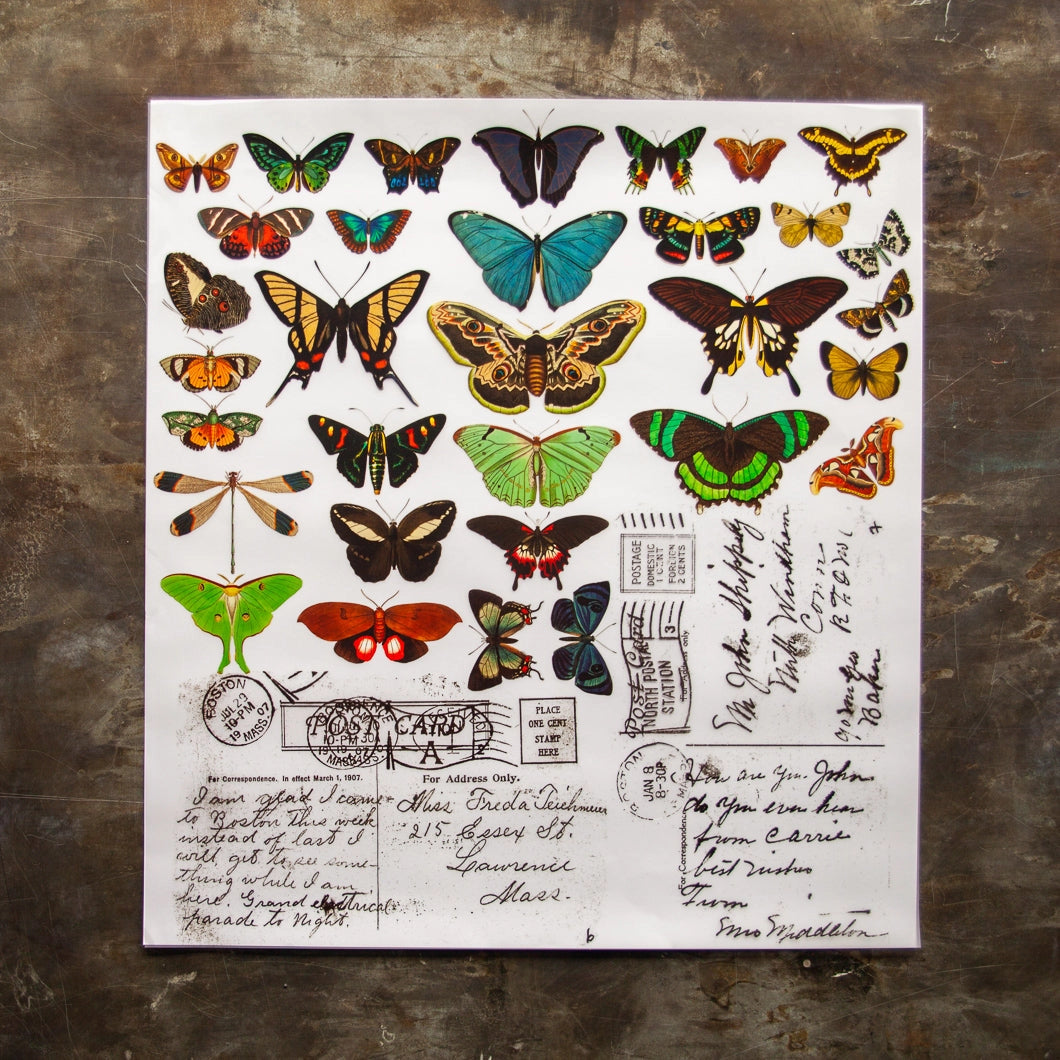 BOSTON
JUL 29
10-PM
MASS. 07
10-PM
MASS.
POST CARD
A
2
PLACE
ONE CENT
STAMP
HERE
For Correspondence. In effect March 1, 1907.
For Address Only.
I am glad I came
to Boston this week
instead of last I
will get to see some-
thing while I am
here. Grand electrical
parade to Night.
Miss Freda Teichmeier
215 Essex St.
Lawrence
Mass.
b
POSTAGE
DOMESTIC
1 CENT
FOREIGN
2 CENTS
Post Card
NORTH POSTAL
STATION
3
For address only
Mr John Shippey
Windham
Conn
BOSTON
JAN 8
8-30P
MA
For Correspondence
How are you John
do you ever hear
from Carrie
best wishes
From
Mrs Middleton